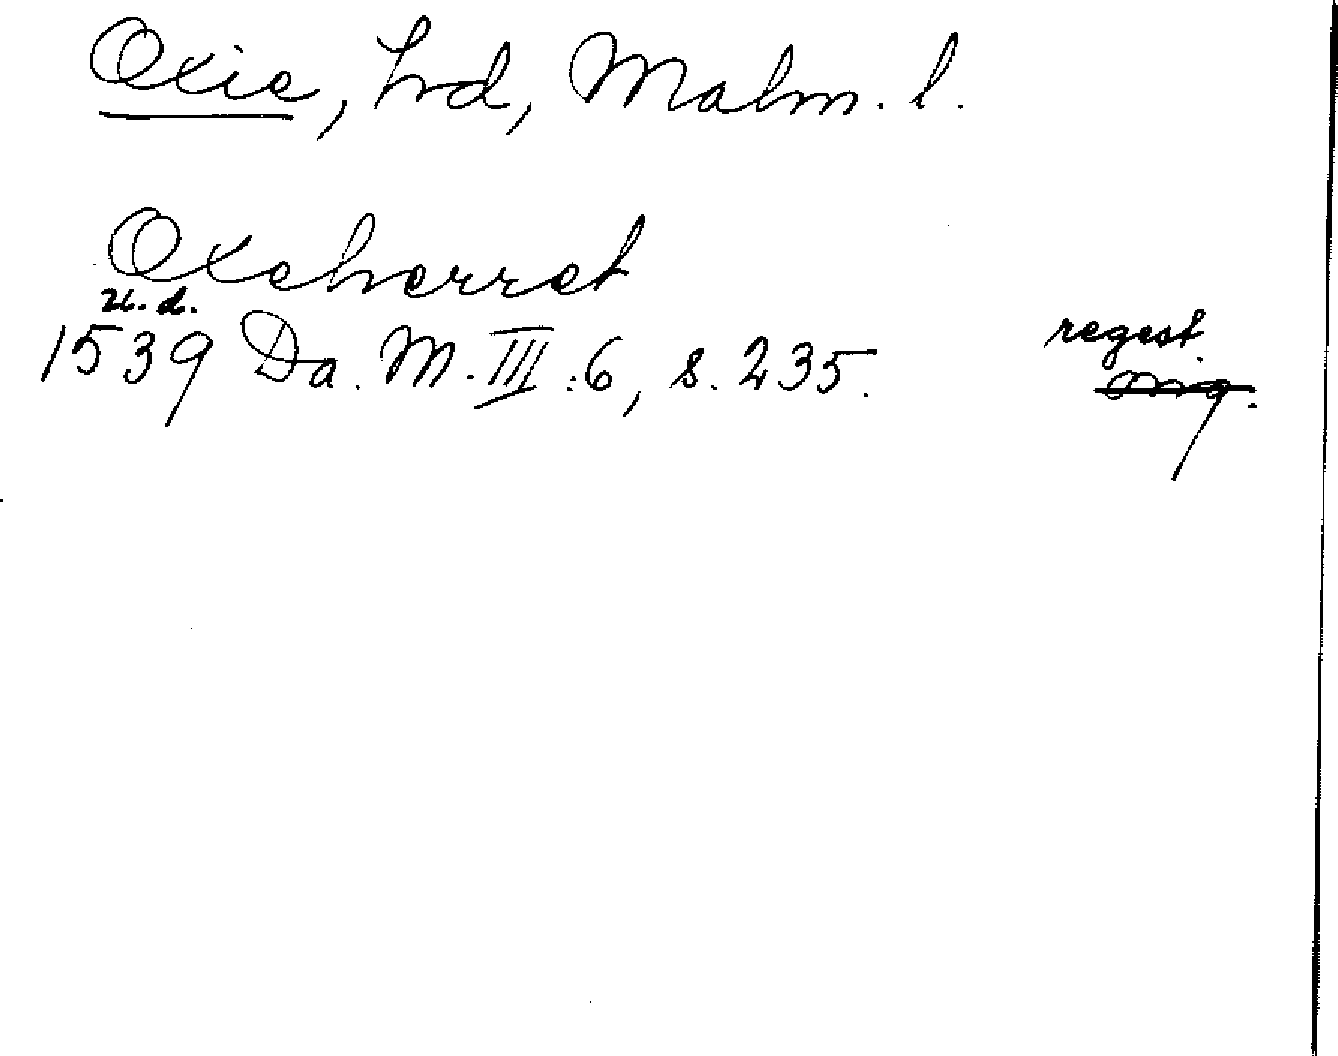 Oxie, hd, Malm. l.
Oxeherret
u. d.
1539 Da. M. III :6, s. 235. regest.